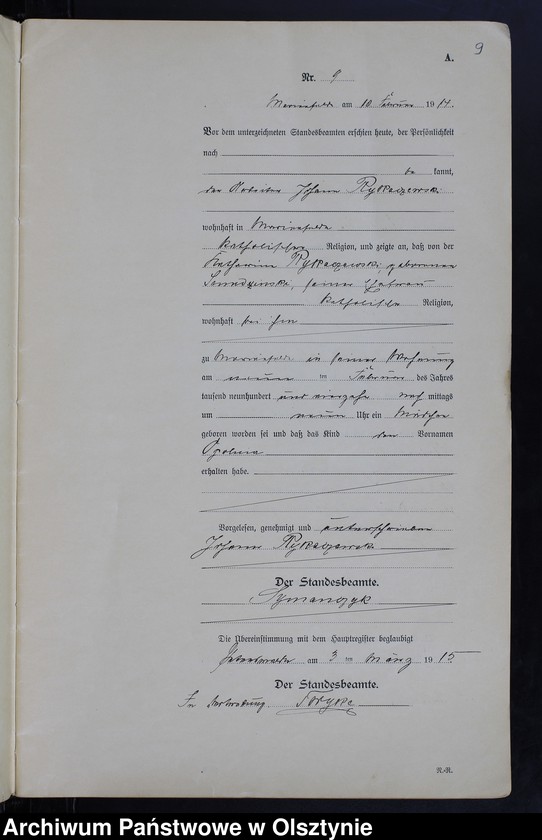 9
A.
Nr. 9
Marienfelde am 10 Februar 1914.
Vor dem unterzeichneten Standesbeamten erschien heute, der Persönlichkeit
nach
be kannt,
der Arbeiter Johann
wohnhaft in Marienfelde
katholischer Religion, und zeigte an, daß von der
Katharina geborenen
seiner Ehefrau
katholischer Religion,
wohnhaft bei ihm
zu Marienfelde in seiner Wohnung
am neunten ten Februar des Jahres
tausend neunhundert und vierzehn nach mittags
um neun Uhr ein Mädchen
geboren worden sei und daß das Kind den Vornamen
erhalten habe.
Vorgelesen, genehmigt und unterschrieben
Johann
Der Standesbeamte.
Szymanczyk
Die Übereinstimmung mit dem Hauptregister beglaubigt
am 3 ten März 1915
Der Standesbeamte.
In Vertretung
R.-R.
Archiwum Państwowe w Olsztynie